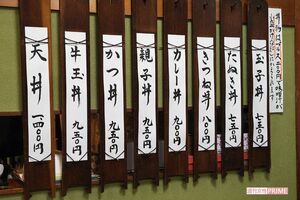 玉子丼 七五〇円
たぬき丼 七五〇円
きつね丼 八〇〇円
カレー丼 九〇〇円
親子丼 九五〇円
かつ丼 九五〇円
牛玉丼 九五〇円
天丼 一四〇〇円
週刊女性PRIME